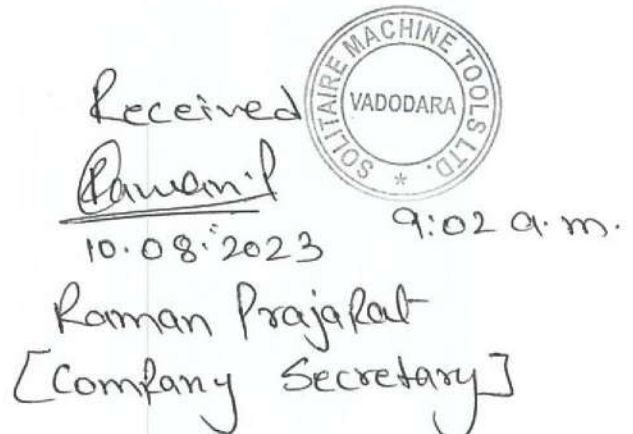 Received
SOLITAIRE MACHINE TOOLS LTD. *
VADODARA
10.08.2023 9:02 a.m.
Raman Prajapat
[Company Secretary]